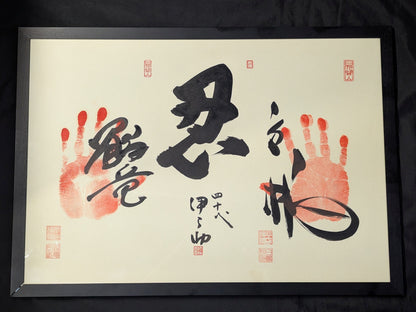 白鵬
忍
四十代
伊之助
鶴竜